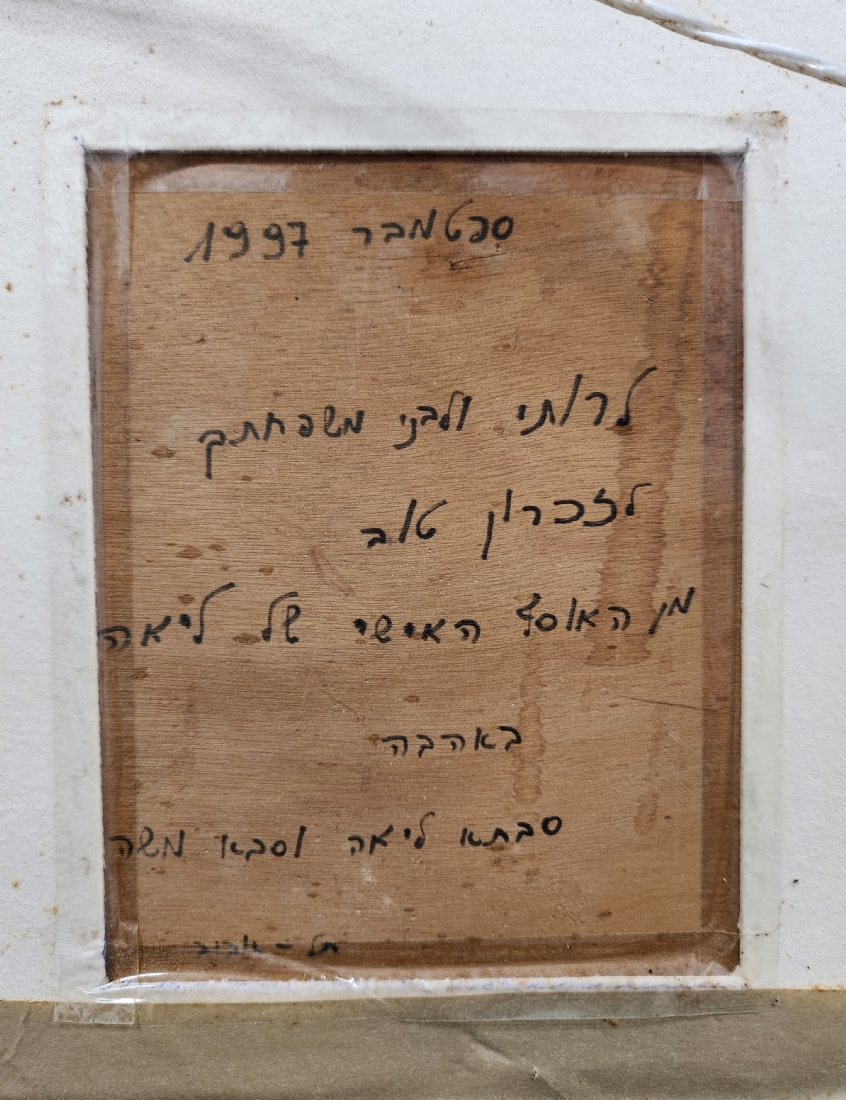 ספטמבר 1997
לרותי ולבני משפחתך
לזכרון טוב
מן האוסף האישי של ליאה
באהבה
סבתא ליאה וסבא משה
תל - אביב